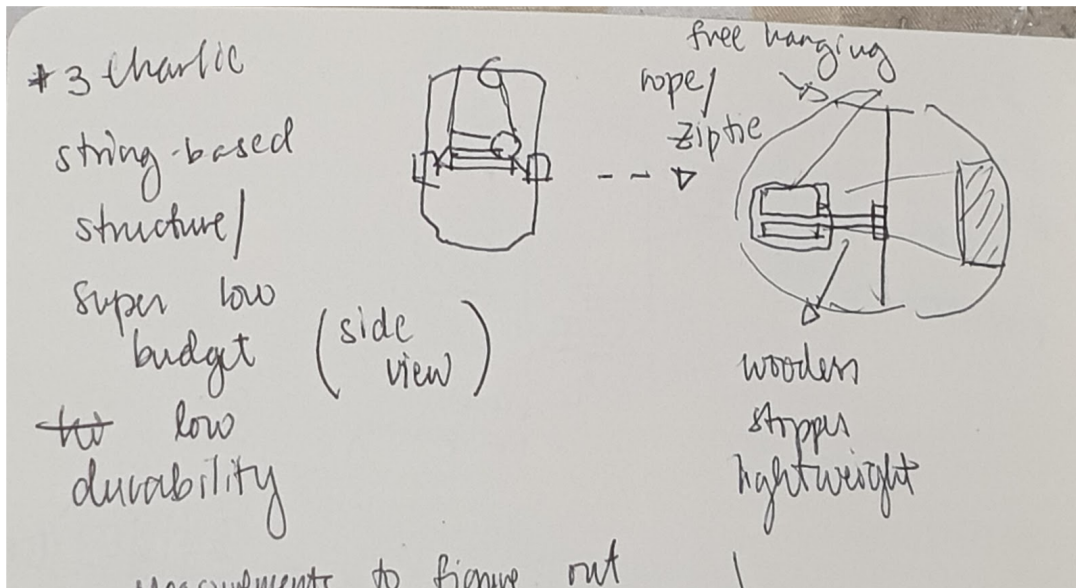 #3 Charlie
string-based
structure/
super low
budget
low
durability
(side
view)
free hanging
rope/
ziptie
wooden
stopper
lightweight
measurements to figure out